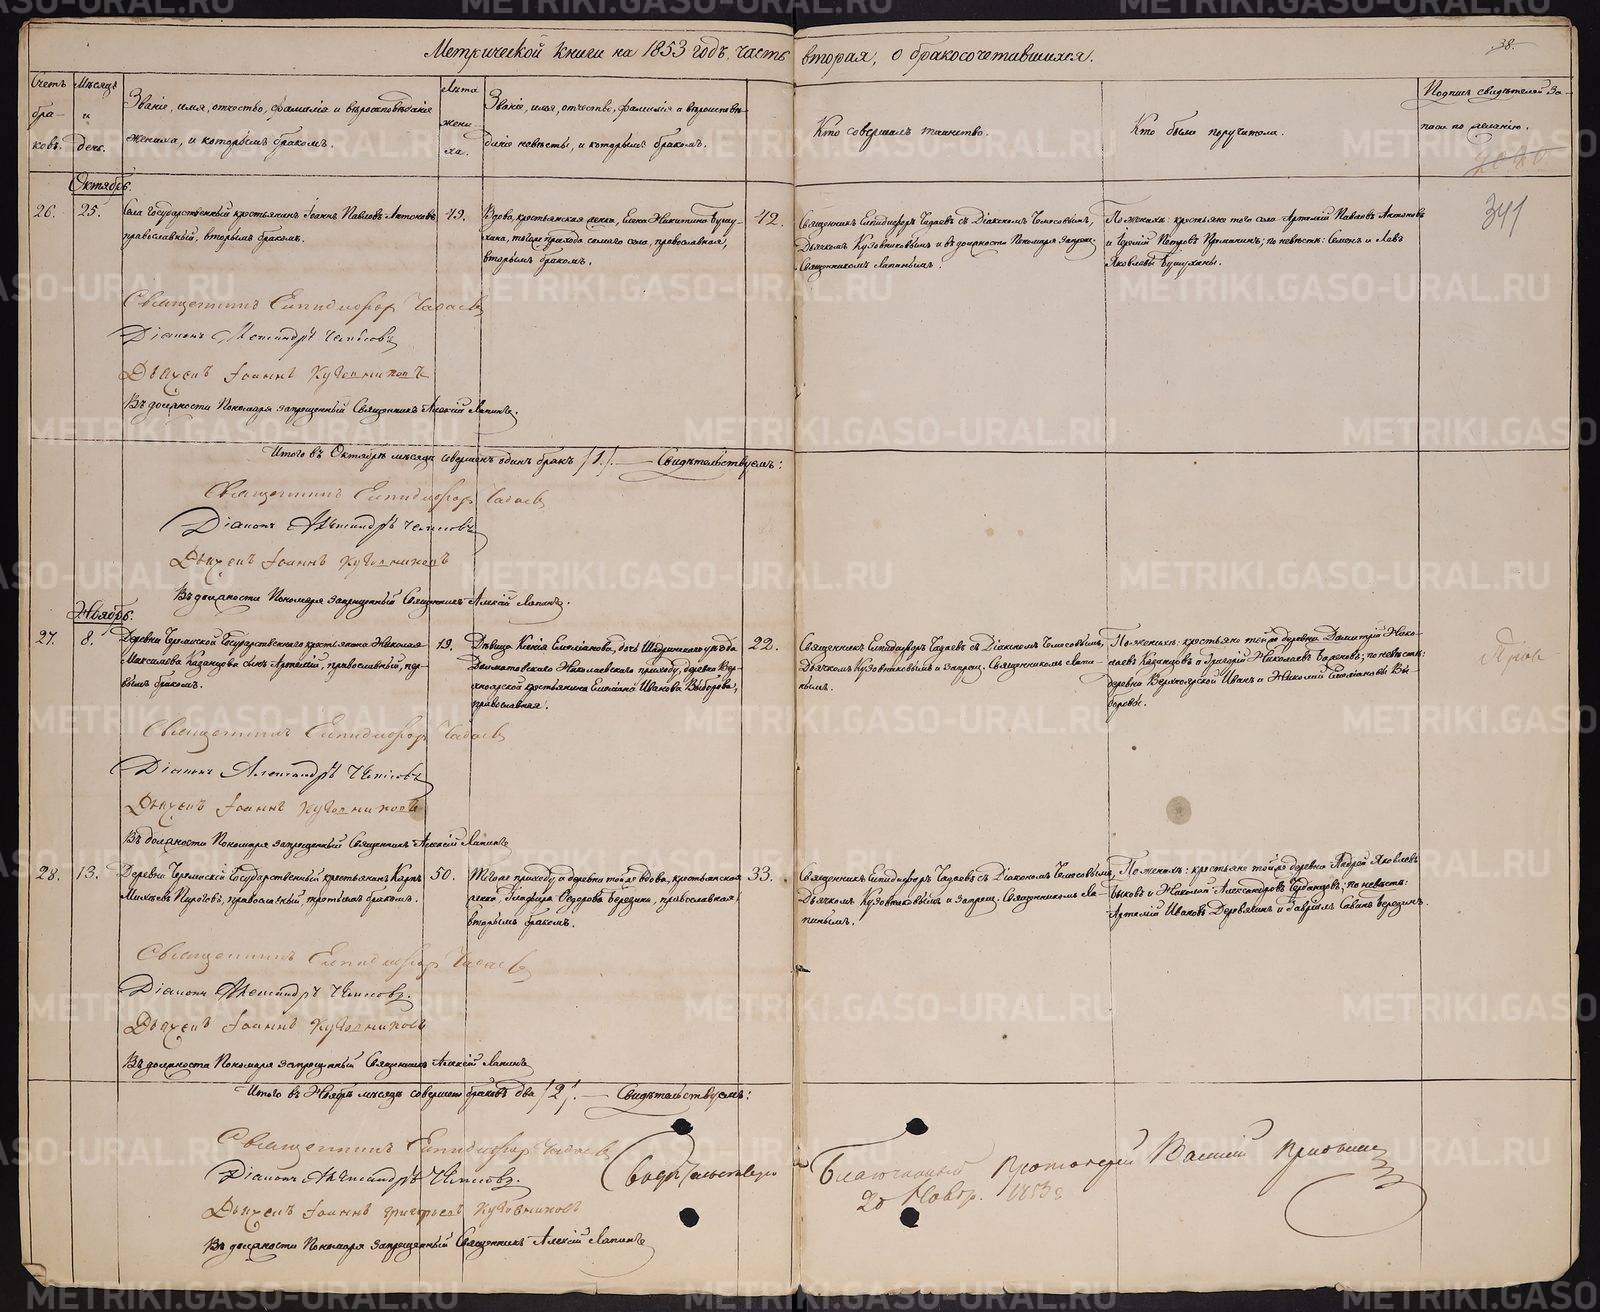 Метрической книги на 1853 годъ, часть вторая, о бракосочетавшихся.
38.
Счетъ бра-ковъ.
Мѣсяцъ и день.
Званіе, имя, отчество, фамилія и вѣроисповѣданіе
жениха, и которымъ бракомъ.
Лѣта жени-ха.
Званіе, имя, отчество, фамилія и вѣроисповѣ-
даніе невѣсты, и которымъ бракомъ.
Кто совершалъ таинство.
Кто были поручатели.
Подпись свидѣтелей за-
писи по желанію.
Октябрь.
26.
25.
Села Государственный крестьянинъ Іоаннъ Павловъ Антоновъ
православный, вторымъ бракомъ.
49.
Вдова, крестьянская женка, Елена Никитина Бушу-
хина, тогоже прихода самаго села, православная,
вторымъ бракомъ.
42.
Священникъ Елпидифоръ Чадаевъ съ Діакономъ
Дьячкомъ Кузовниковымъ и въ должности Пономаря запрещ.
Священникомъ Лапинымъ.
По женихѣ: крестьяне того села Артемій Павловъ Антоновъ
и Петровъ; по невѣстѣ: Семенъ и Левъ
Яковлевы Бушухины.
341
Священникъ Елпидифоръ Чадаевъ
Діаконъ Александръ
Дьячекъ Іоаннъ Кузовниковъ
Въ должности Пономаря запрещенный Священникъ Алексій Лапинъ.
Итого въ Октябрѣ мѣсяцѣ совершенъ одинъ бракъ /1/. — Свидѣтельствуемъ:
Священникъ Елпидифоръ Чадаевъ
Діаконъ Александръ
Дьячекъ Іоаннъ Кузовниковъ
Въ должности Пономаря запрещенный Священникъ Алексій Лапинъ.
Ноябрь.
27.
8.
Деревни Государственнаго крестьянина Николая
Максимова Казанцова сынъ Артемій, православный, пер-
вымъ бракомъ.
19.
Дѣвица Ксенія Емиліанова, дочь Шадринскаго уѣзда
Далматовскаго Николаевскаго приходу, деревни Вер-
хноярской крестьянина Емиліана Иванова Выборова,
православная.
22.
Священникъ Елпидифоръ Чадаевъ съ Діакономъ
Дьячкомъ Кузовниковымъ и запрещ. Священникомъ Лапи-
нымъ.
По женихѣ: крестьяне тойже деревни Димитрій Нико-
лаевъ Казанцовъ и Григорій Николаевъ; по невѣстѣ:
деревни Верхноярской Иванъ и Николай Емиліановы Вы-
боровы.
Священникъ Елпидифоръ Чадаевъ
Діаконъ Александръ
Дьячекъ Іоаннъ Кузовниковъ
Въ должности Пономаря запрещенный Священникъ Алексій Лапинъ
28.
13.
Деревни Государственный крестьянинъ Карпъ
Михеевъ Пироговъ, православный, третьимъ бракомъ.
50.
Тогоже приходу и деревни тойже вдова, крестьянская
женка, Глафира Федорова Березина, православная,
вторымъ бракомъ.
33.
Священникъ Елпидифоръ Чадаевъ съ Діакономъ
Дьячкомъ Кузовниковымъ и запрещ. Священникомъ Ла-
пинымъ.
По женихѣ: крестьяне тойже деревни Андрей Яковлевъ
Быковъ и Николай Александровъ; по невѣстѣ:
Артемій Ивановъ Деревякинъ и Гавріилъ Савинъ Березинъ.
Священникъ Елпидифоръ Чадаевъ
Діаконъ Александръ
Дьячекъ Іоаннъ Кузовниковъ
Въ должности Пономаря запрещенный Священникъ Алексій Лапинъ
Итого въ Ноябрѣ мѣсяцѣ совершено браковъ два /2/. — Свидѣтельствуемъ:
Священникъ Елпидифоръ Чадаевъ
Діаконъ Александръ
Дьячекъ Іоаннъ Григорьевъ Кузовниковъ
Въ должности Пономаря запрещенный Священникъ Алексій Лапинъ
Свидѣтельствую Благочинный Протоіерей Василій
20 Ноябр. 1853 г.
METRIKI.GASO-URAL.RU